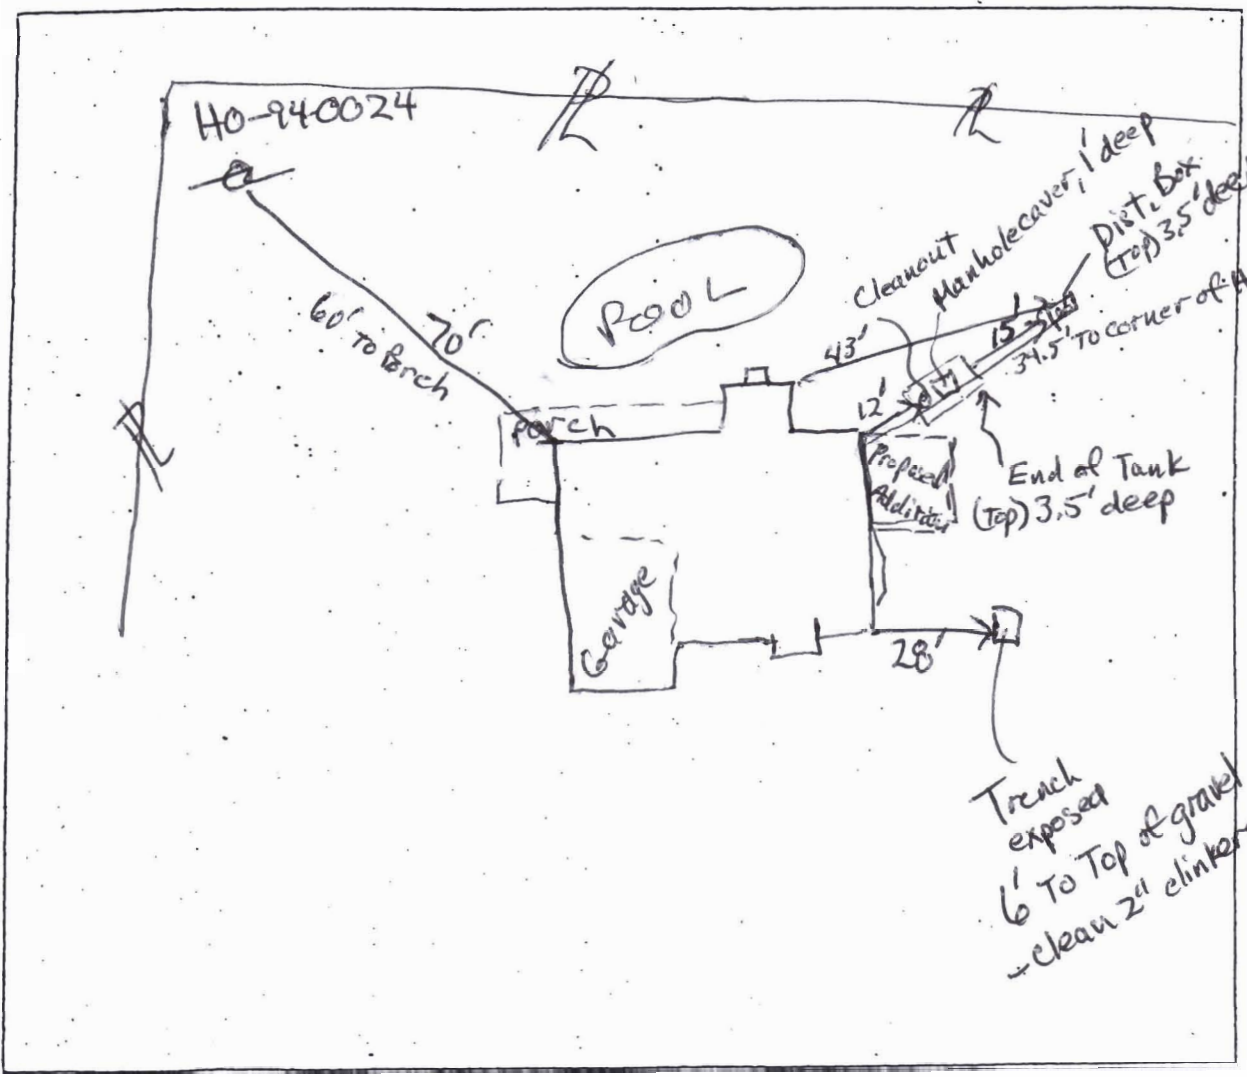 HO-94-0024
PL
PL
PL
60' To Porch
70'
POOL
Cleanout
Manhole cover, 1' deep
Dist. Box
(Top) 3.5' deep
43'
15'
34.5' To corner of
12'
Porch
Proposed
Addition
End of Tank
(Top) 3.5' deep
Garage
28'
Trench
exposed
6' To Top of gravel
-clean 2" clinker